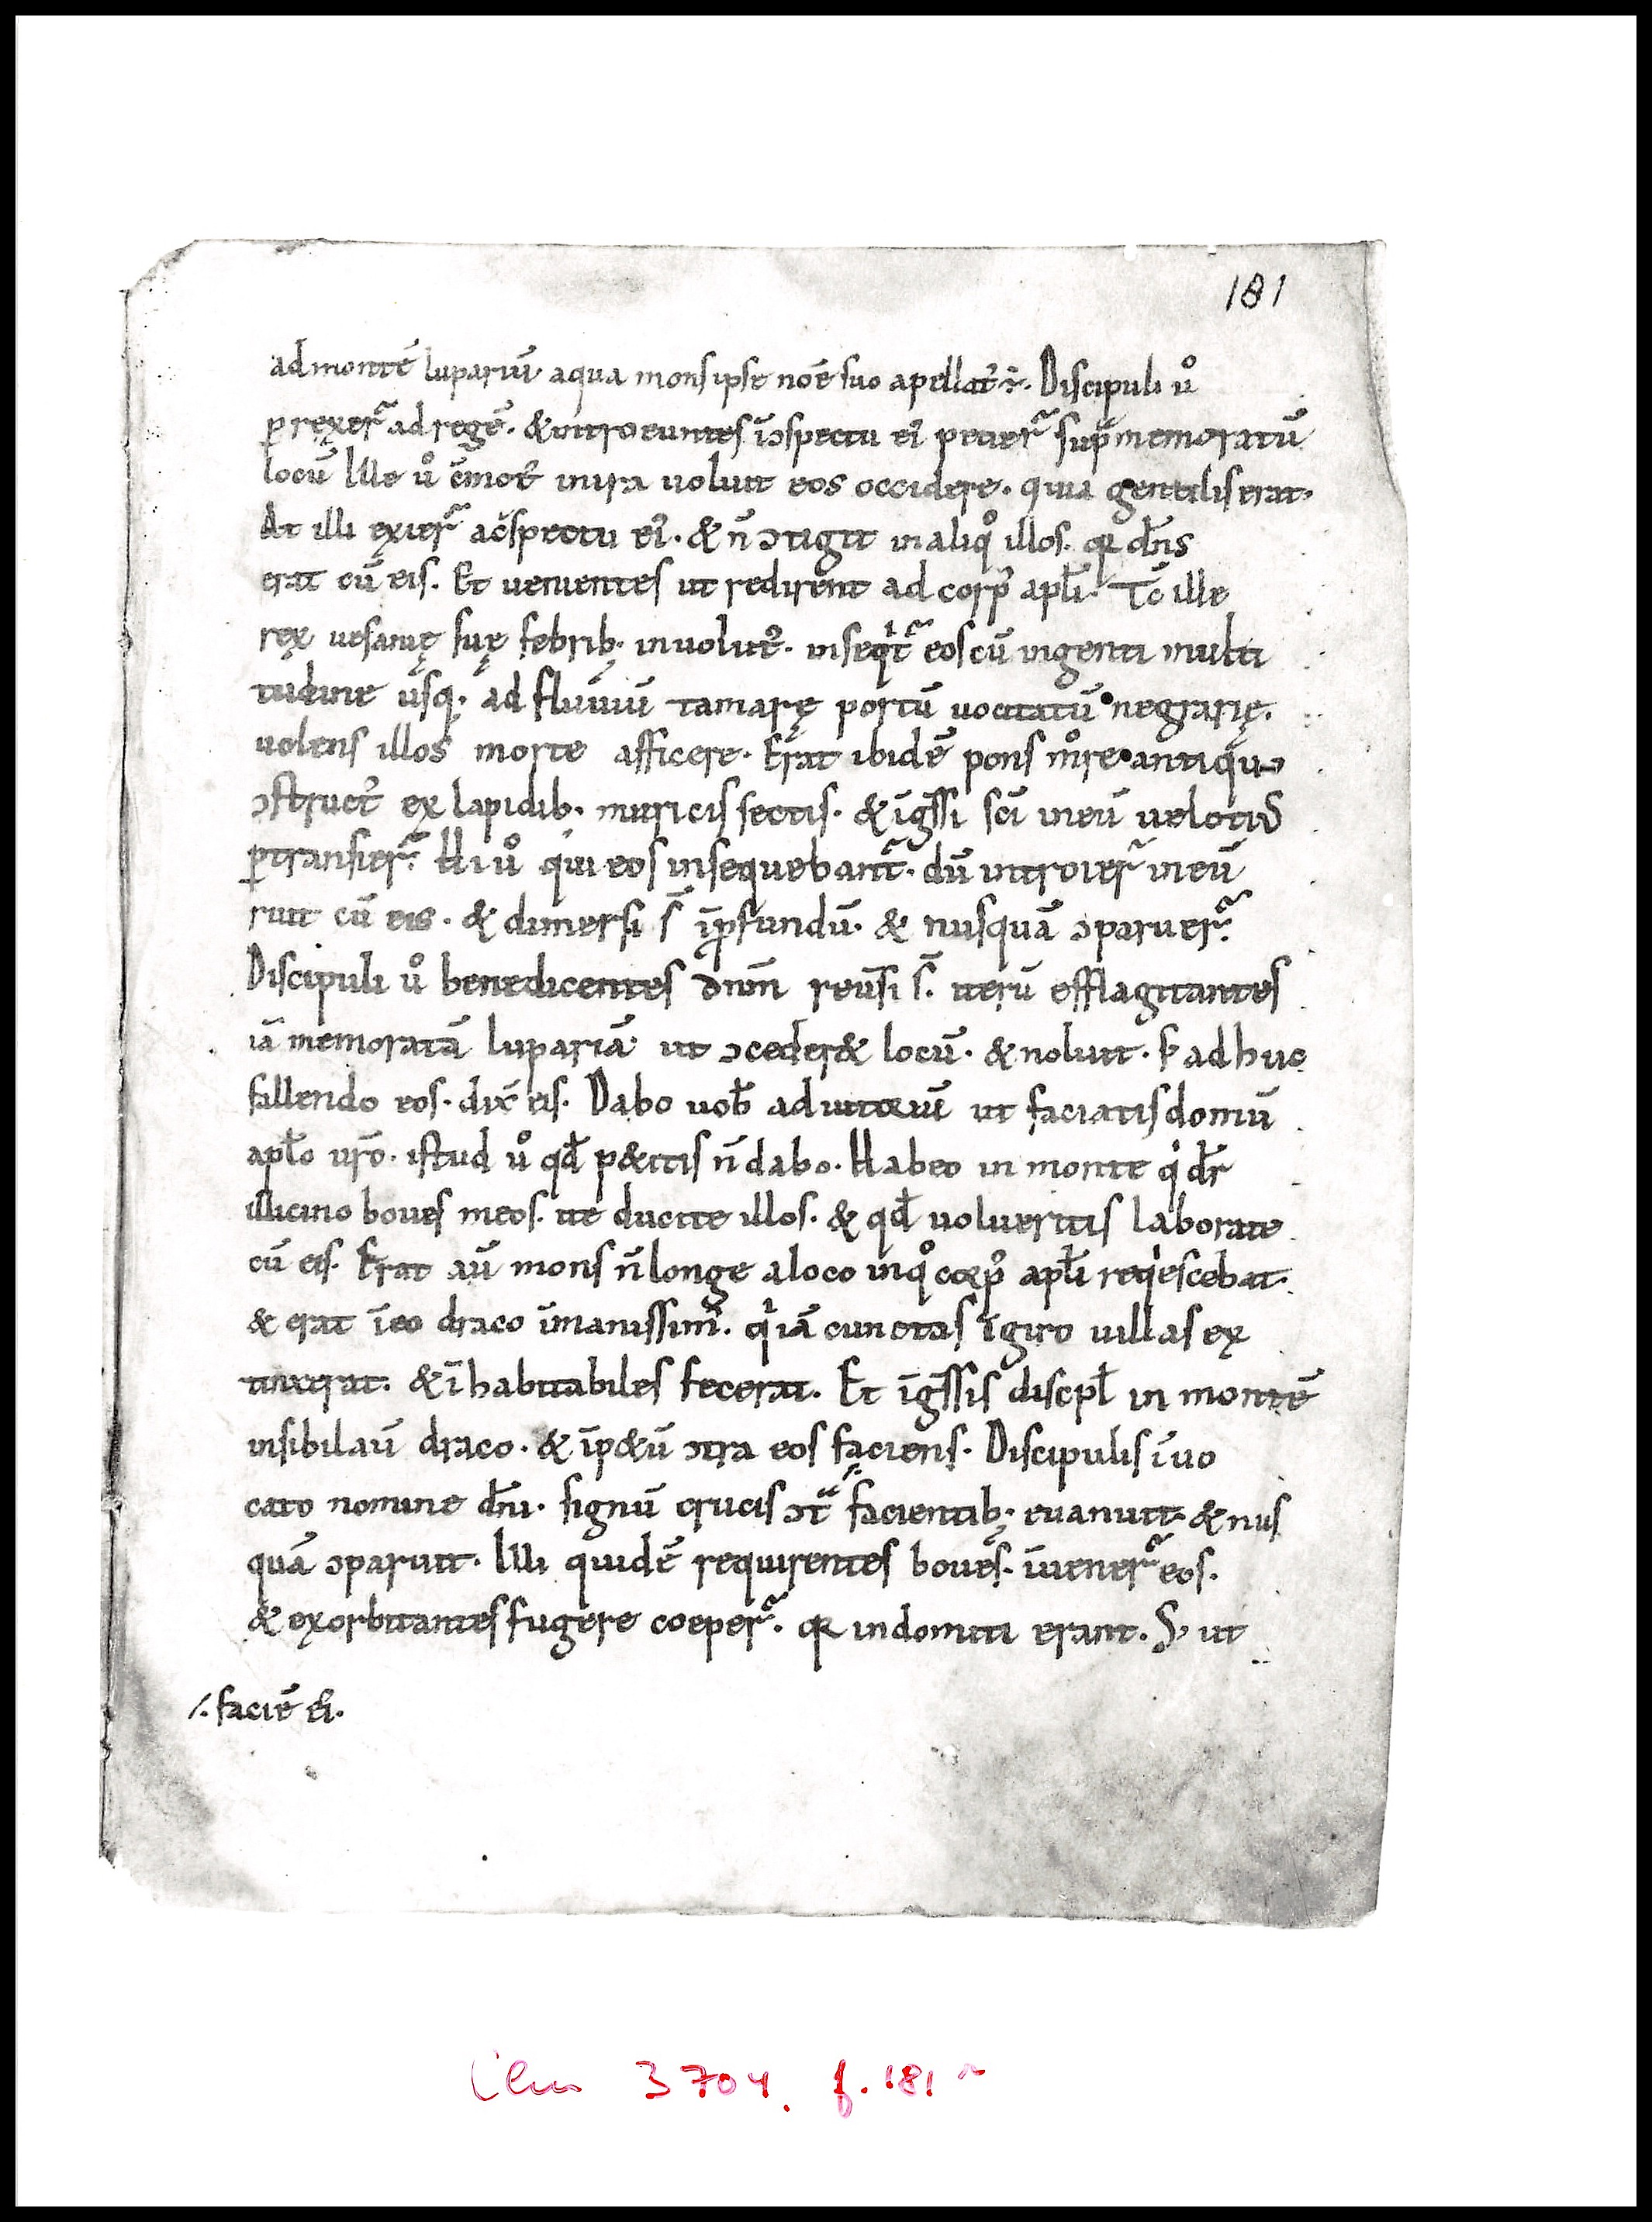 181
ad montē lupariū a qua mons ipse noē suo apellat᷒ ÷. Discipuli u̾o
ꝑrexer̄ ad regē. & introeuntes ī ↄspectu ei᷒ petier̄ sup̄memoratū
locū Ille uͦ cōmot᷒ in ira uoluit eos occidere. quia gentilis erat.
At illi exier̄ a cͦspectu ei᷒. & n̄ ↄtigit in aliqͦ illos. qꝛ dn̄s
erat cū eis. Et uenientes ut redirent ad corp᷒ apl̄i. Tc̄ ille
rex uesanię suę febrib; inuolut᷒. inseqͥt᷒ eos cū ingenti multi
tudine usq; ad fluuiū tamarę portū uocitatū negrarię.
uolens illos morte afficere. Erat ibidē pons mͦre antiquo
ↄstruct᷒ ex lapidib; muricis sectis. & īgs̄si sc̄i in eū uelocit᷒
ꝑtransier̄. Hi uͦ qui eos insequebant᷒. dū introier̄ in eū
ruit cū eis. & dimersi s̄ ī ꝓfundū. & nusquā ↄparuer̄.
Discipuli uͦ benedicentes dn̄m reuersi s̄. iterū efflagitantes
iā memoratā lupariā. ut ↄceder& locū. & noluit. s; adhuc
fallendo eos. dix̄ eis. Dabo uob̄ adiutoriū ut faciatis domū
apl̄o ur̄o. istud uͦ qd̄ p&itis n̄ dabo. Habeo in monte qͥ dr̄
illicino boues meos. ite ducite illos. & qd̄ uolueritis laborate
cū eis. Erat aū mons n̄ longe a loco in qͦ corp᷒ apl̄i reqͥescebat.
& erat ī eo draco īmanissim᷒. qͥ iā cunctas ī giro uillas ex
tinxerat. & īhabitabiles fecerat. Et īgs̄sis discipl̄ in montē
insibilauī draco. & īp&ū ↄtra eos faciens. Discipulis īuo
cato nomine dn̄i. signū crucis ↄtͣ ⁒ facientib; euanuit & nus
quā ↄparuit. Illi quidē requirentes boues. īuener̄ eos.
& exorbitantes fugere coeper̄. qꝛ indomiti erant. S; ut
⁒ faciē ei᷒.
Clm 3704, f. 181r